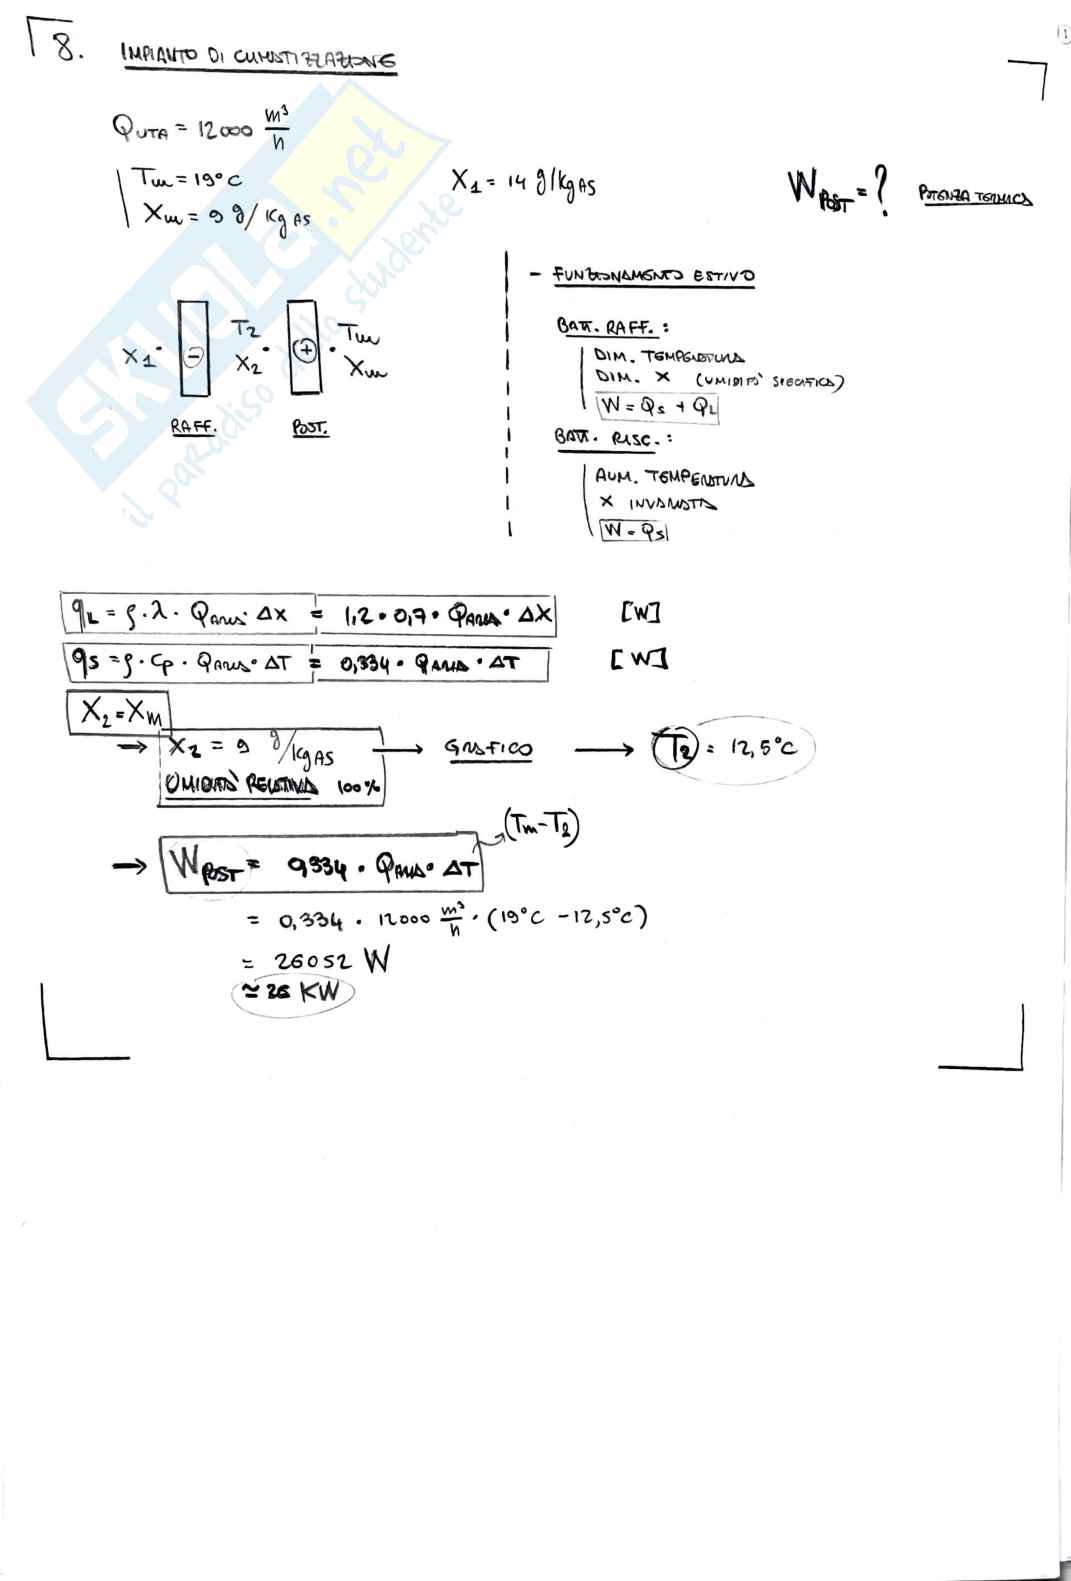 8. IMPIANTO DI CLIMATIZZAZIONE
1
QUTA = 12000 m³/h
Tm = 19°C
Xm = 9 g/KgAS
X1 = 14 g/KgAS
WPOST = ? POTENZA TERMICA
X1 · − T2 X2 · + · Tm Xm
RAFF. POST.
- FUNZIONAMENTO ESTIVO
BATT. RAFF. :
DIM. TEMPERATURA
DIM. X (UMIDITA' SPECIFICA)
W = QS + QL
BATT. RISC. :
AUM. TEMPERATURA
X INVARIATA
W = QS
qL = ρ · λ · QARIA · ΔX = 1,2 · 0,7 · QARIA · ΔX [W]
qS = ρ · cp · QARIA · ΔT = 0,334 · QARIA · ΔT [W]
X2 = Xm
→ X2 = 9 g/KgAS → GRAFICO → T2 = 12,5°C
UMIDITA' RELATIVA 100%
→ WPOST = 0,334 · QARIA · ΔT → (Tm - T2)
= 0,334 · 12000 m³/h · (19°C - 12,5°C)
= 26052 W
≃ 26 KW
SKUOLA.net
il paradiso dello studente